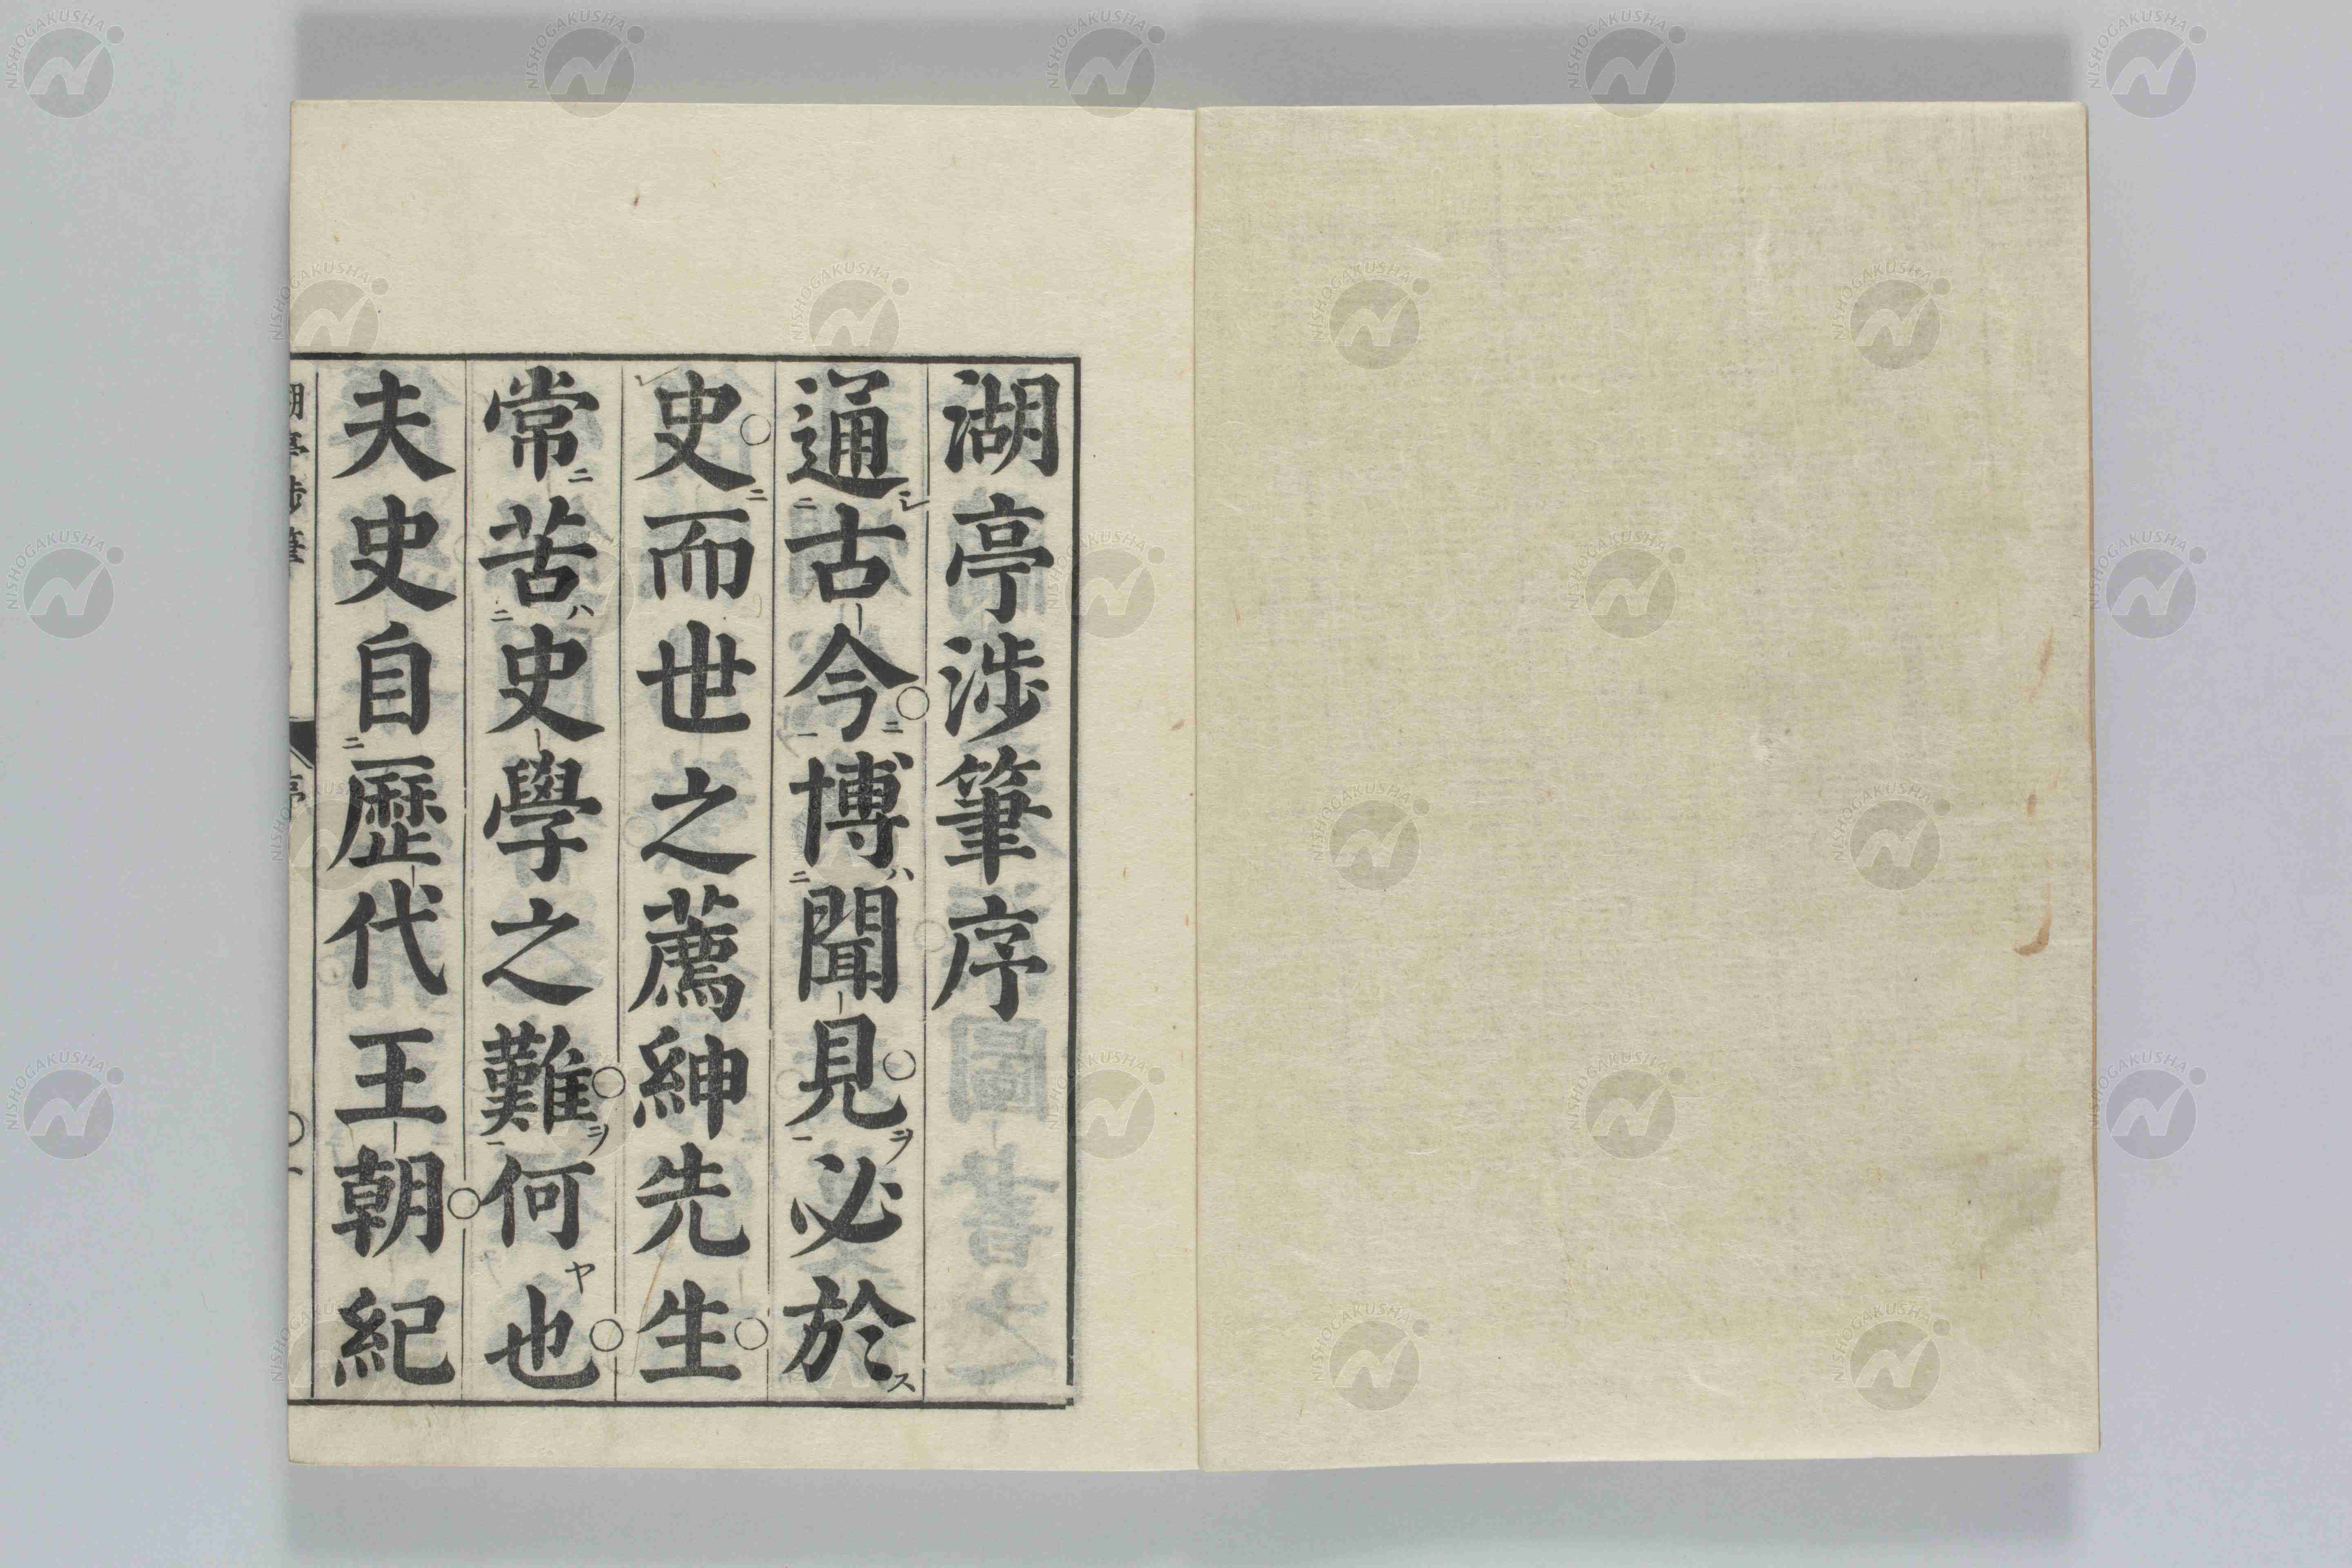 湖亭渉筆序
通古今博聞見必於
史而世之薦紳先生
常苦史學之難何也
夫史自歷代王朝紀
湖亭渉筆
序
一
NISHOGAKUSHA